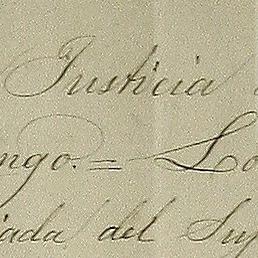 Justicia
ngo. = Lo
iada del Sup